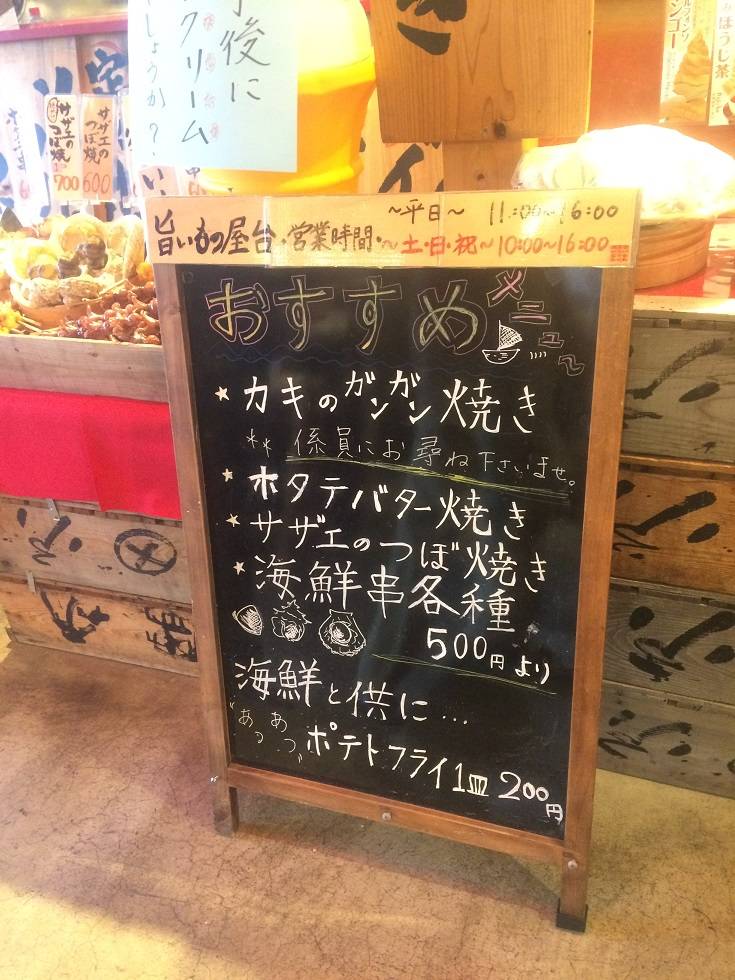 後に
クリーム
しょうか?
サザエの
つぼ焼
700
サザエの
つぼ焼
600
ほうじ茶
~平日~ 11:00~16:00
旨いもの屋台・営業時間・~土・日・祝~10:00~16:00
おすすめメニュー
カキのガンガン焼き
※係員にお尋ね下さいませ。
ホタテバター焼き
サザエのつぼ焼き
海鮮串各種
500円より
海鮮と供に…
"あっあつ"ポテトフライ1皿200円